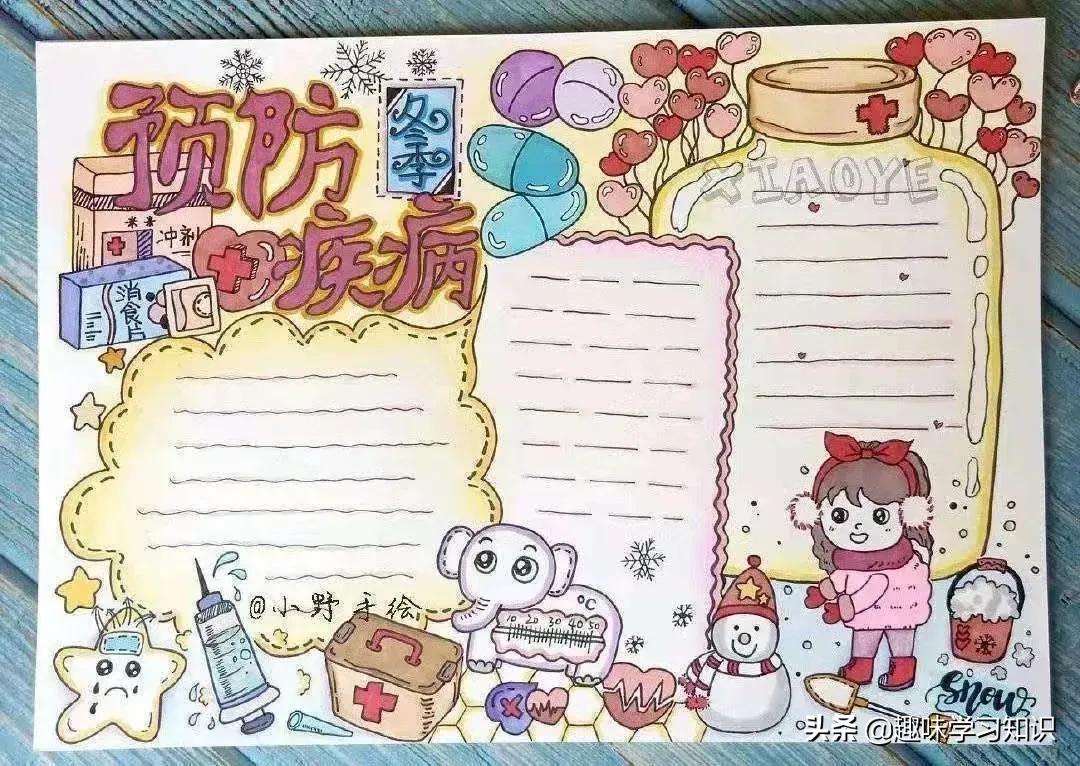 冬季
预防
疾病
XIAOYE
冲剂
消食片
@小野手绘
°C
10 20 30 40 50
Snow
头条 @趣味学习知识